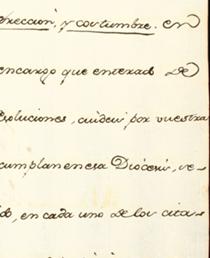 ereccion, y costumbre. en
encargo que enterado de
esoluciones, cuiden por vuestra
cumplan en esa Diócesi, ve-
do, en cada uno de los cita-